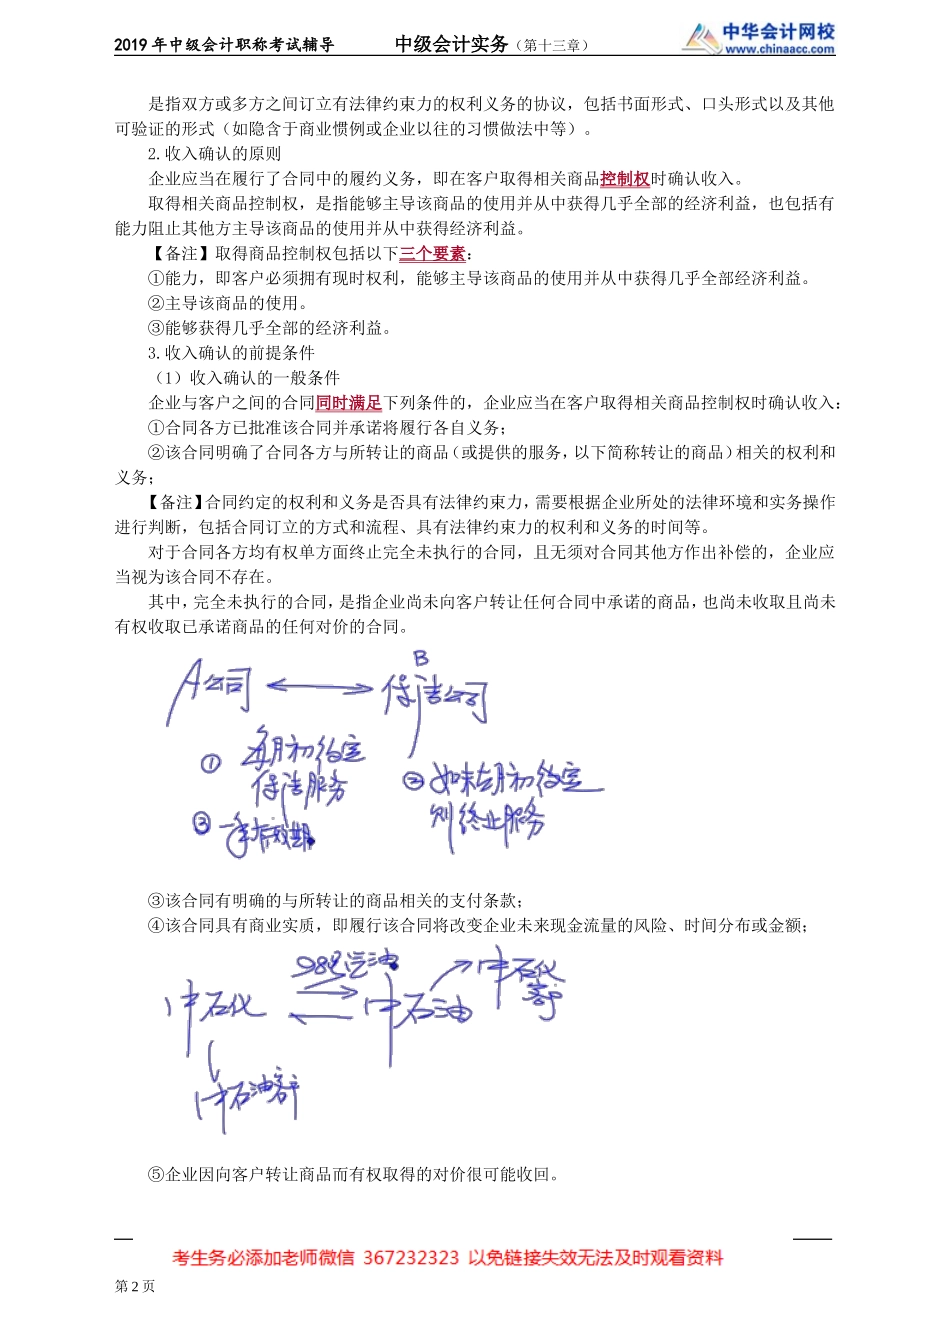 2019 年中级会计职称考试辅导 中级会计实务（第十三章） 中华会计网校
www.chinaacc.com
是指双方或多方之间订立有法律约束力的权利义务的协议，包括书面形式、口头形式以及其他
可验证的形式（如隐含于商业惯例或企业以往的习惯做法中等）。
2.收入确认的原则
企业应当在履行了合同中的履约义务，即在客户取得相关商品控制权时确认收入。
取得相关商品控制权，是指能够主导该商品的使用并从中获得几乎全部的经济利益，也包括有
能力阻止其他方主导该商品的使用并从中获得经济利益。
【备注】取得商品控制权包括以下三个要素：
①能力，即客户必须拥有现时权利，能够主导该商品的使用并从中获得几乎全部经济利益。
②主导该商品的使用。
③能够获得几乎全部的经济利益。
3.收入确认的前提条件
（1）收入确认的一般条件
企业与客户之间的合同同时满足下列条件的，企业应当在客户取得相关商品控制权时确认收入：
①合同各方已批准该合同并承诺将履行各自义务；
②该合同明确了合同各方与所转让的商品（或提供的服务，以下简称转让的商品）相关的权利和
义务；
【备注】合同约定的权利和义务是否具有法律约束力，需要根据企业所处的法律环境和实务操作
进行判断，包括合同订立的方式和流程、具有法律约束力的权利和义务的时间等。
对于合同各方均有权单方面终止完全未执行的合同，且无须对合同其他方作出补偿的，企业应
当视为该合同不存在。
其中，完全未执行的合同，是指企业尚未向客户转让任何合同中承诺的商品，也尚未收取且尚未
有权收取已承诺商品的任何对价的合同。
B
A公司 保洁公司
① 每月初约定
保洁服务
② 如未在月初约定
则终止服务
③ 一年有效期
③该合同有明确的与所转让的商品相关的支付条款；
④该合同具有商业实质，即履行该合同将改变企业未来现金流量的风险、时间分布或金额；
98号汽油
中石化 中石油 中石化
客户
中石油客户
⑤企业因向客户转让商品而有权取得的对价很可能收回。
考生务必添加老师微信 367232323 以免链接失效无法及时观看资料
第 2 页